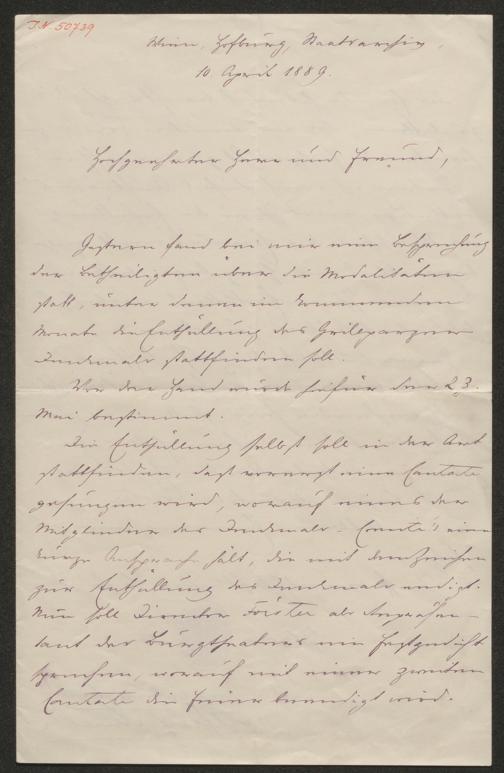 I.N. 50739
Wien, Hofburg, Staatsarchiv,
10. April 1889.
Hochgeehrter Herr und Freund,
Gestern fand bei mir eine Besprechung
der Betheiligten über die Modalitäten
statt, unter denen im kommenden
Monate die Enthüllung des Grillparzer
Denkmals stattfinden soll.
Vor der Hand wurde hiefür der 23.
Mai bestimmt.
Die Enthüllung selbst soll in der Art
stattfinden, daß vorerst eine Cantate
gesungen wird, worauf eines der
Mitglieder des Denkmals-Comité's eine
kurze Ansprache hält, die mit dem Zeichen
zur Enthüllung des Denkmals endigt.
Nun soll Director Förster als Repräsen-
tant des Burgtheaters ein Festgedicht
sprechen, worauf mit einer zweiten
Cantate die Feier beendigt wird.